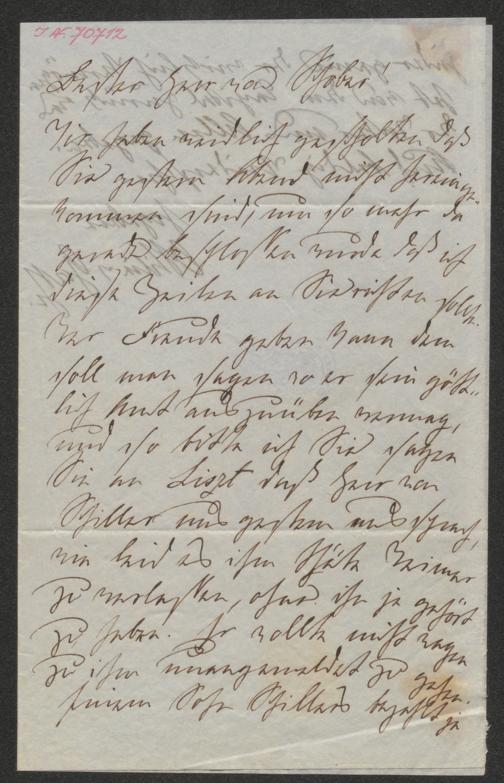 I.N. 70712
Bester Herr von Schober!
Wir haben weidlich gescholten daß
Sie gestern Abend nicht hereinge-
kommen sind, um so mehr da
gerade beschlossen wurde daß ich
diese Zeilen an Sie richten solle.
Wer Freude geben kann dem
soll man sagen wo er sein gött-
lich Amt auszuüben vermag,
und so bitte ich Sie sagen
Sie an Liszt daß Herr von
Schiller uns gestern aussprach,
wie leid es ihm thäte Weimar
zu verlassen, ohne ihn je gehört
zu haben. Er wollte nicht wagen
zu ihm unangemeldet zu gehen.
Einem Sohn Schillers bezahlt ja